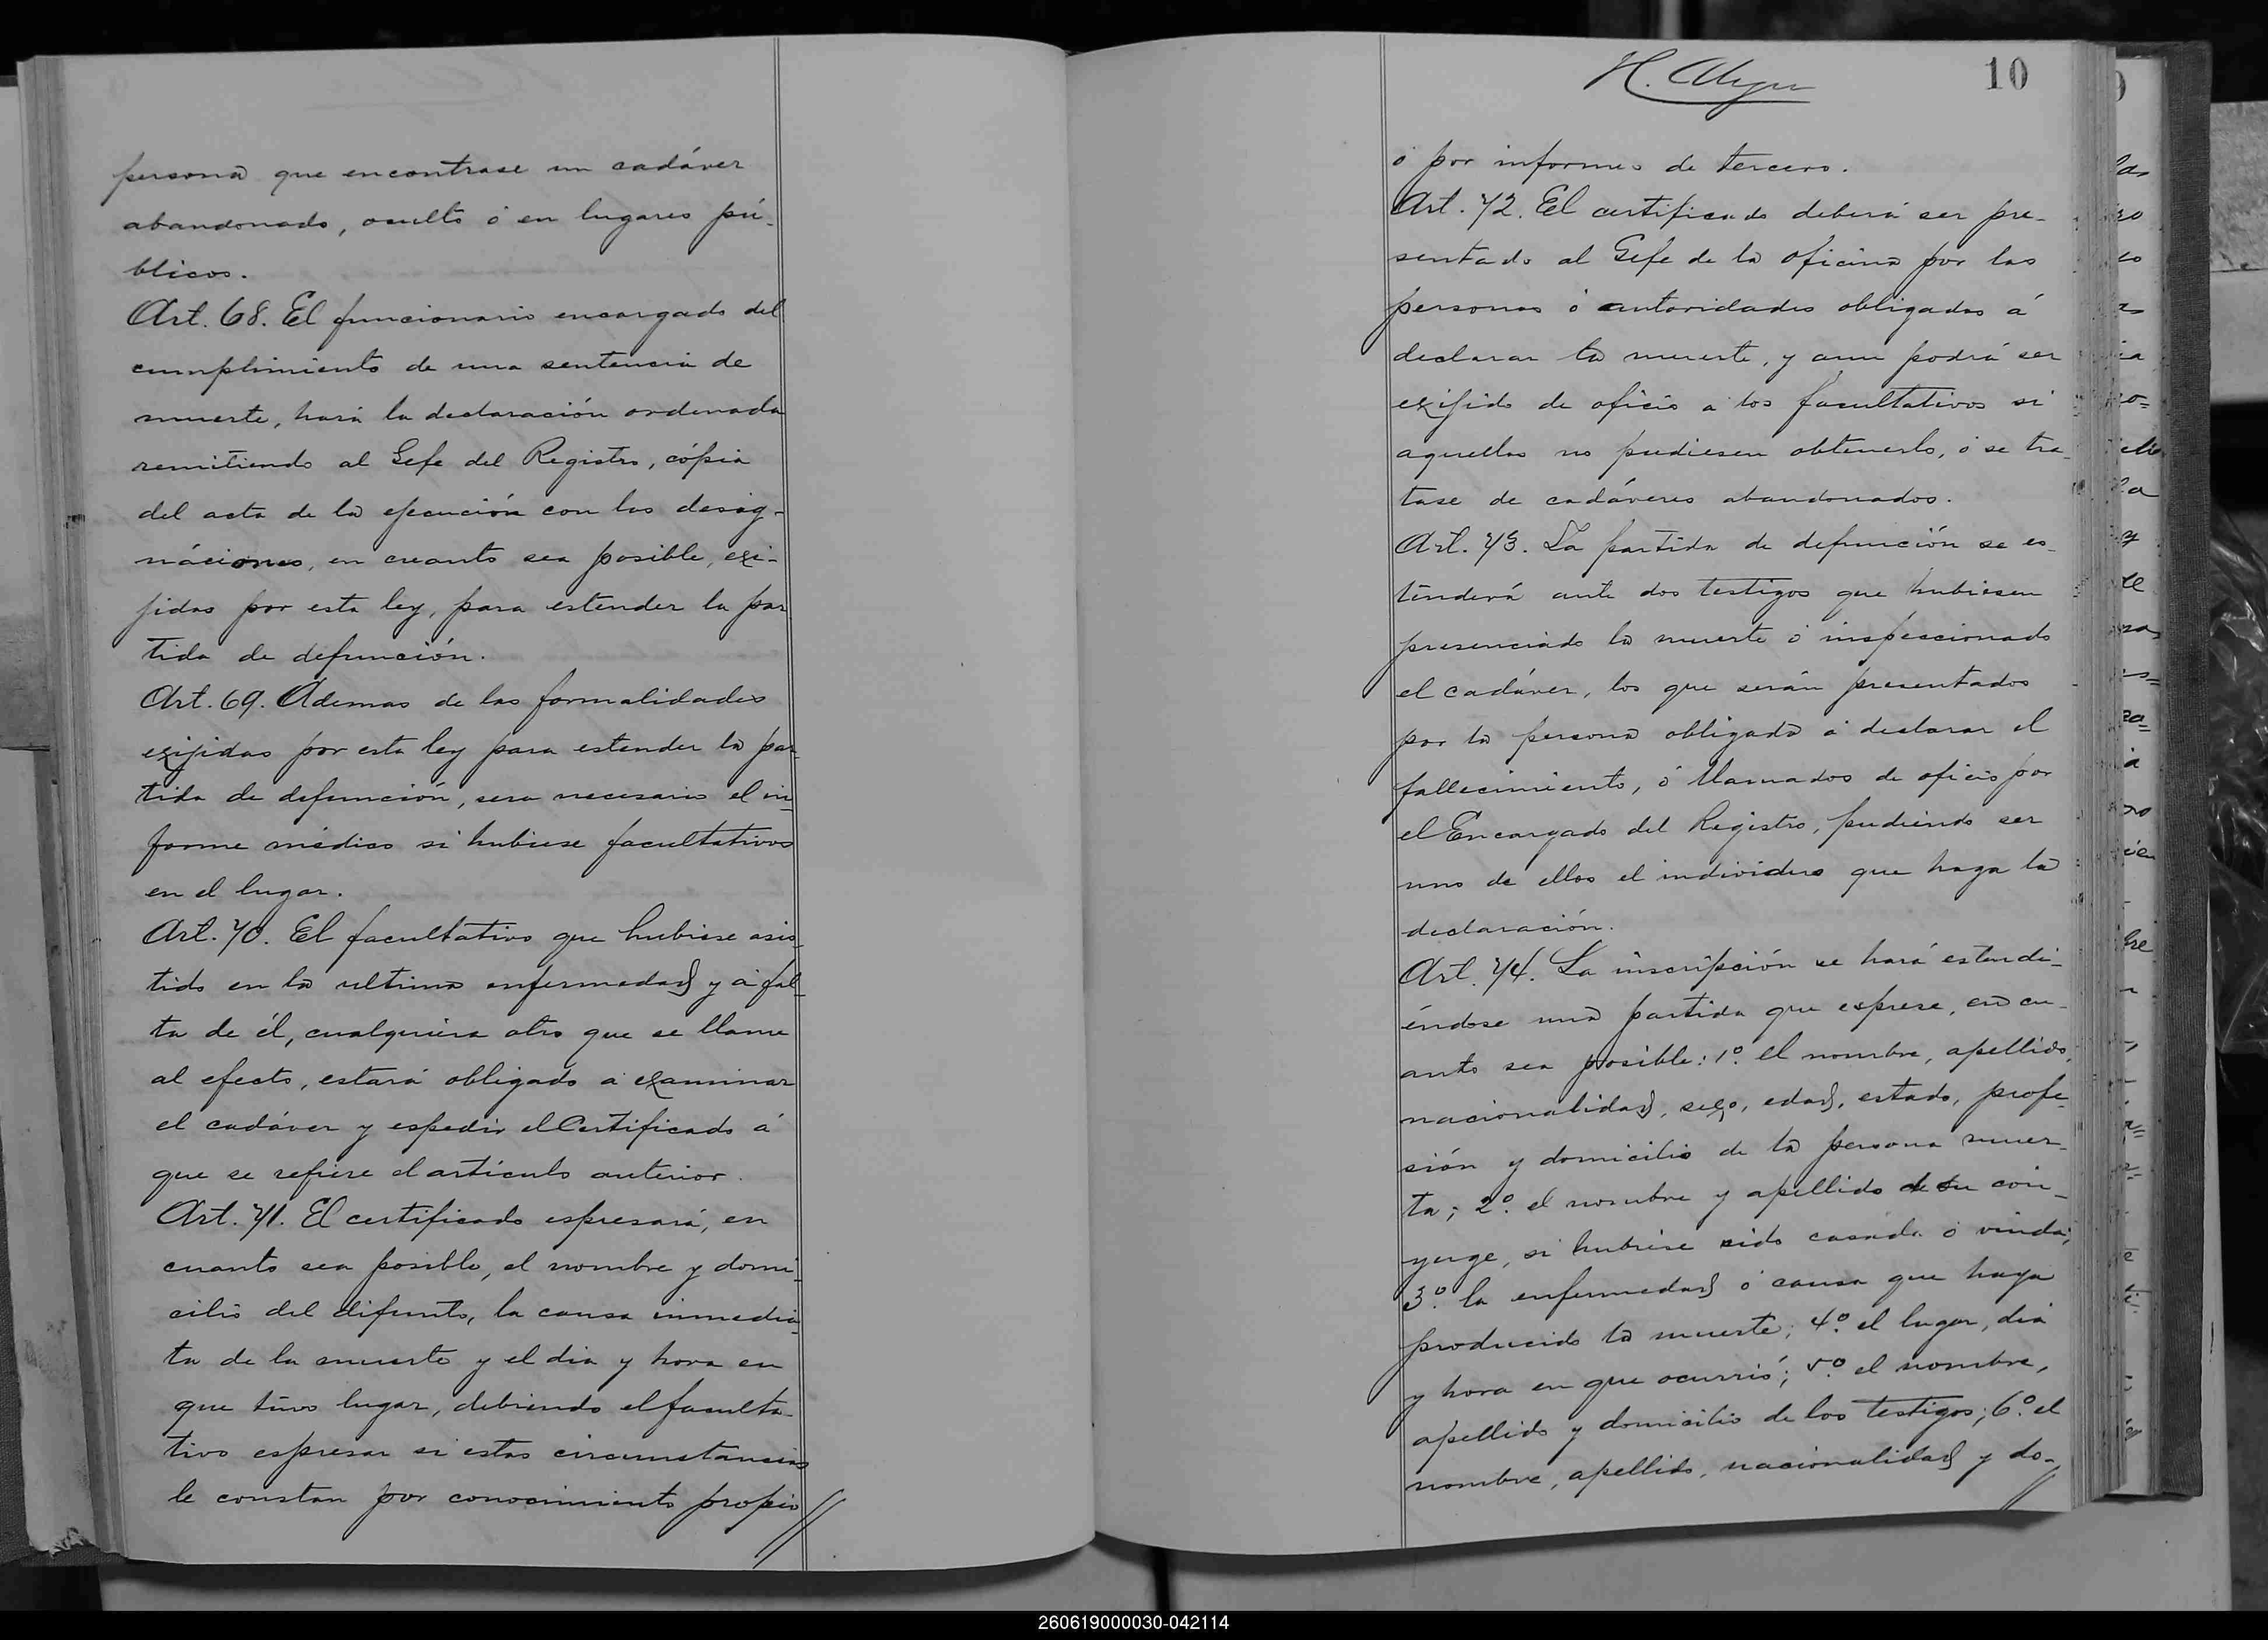 persona que encontrase un cadáver
abandonado, oculto ó en lugares pú-
blicos.
Art. 68. El funcionario encargado del
cumplimiento de una sentencia de
muerte, hará la declaración ordenada
remitiendo al Gefe del Registro, cópia
del acta de la ejecución con las desig-
náciones, en cuanto sea posible, exi-
jidas por esta ley, para estender la par
tida de defunción.
Art. 69. Ademas de las formalidades
exijidas por esta ley para estender la par-
tida de defunción, sera necesario el in-
forme médico si hubiese facultativos
en el lugar.
Art. 70. El facultativo que hubiese asis-
tido en la ultima enfermedad y á fal-
ta de él, cualquiera otro que se llame
al efecto, estará obligado á examinar
el cadáver y espedir el Certificado á
que se refiere el artículo anterior.
Art. 71. El certificado espresará, en
cuanto sea posible, el nombre y domi-
cilio del difunto, la causa inmedia-
ta de la muerte y el dia y hora en
que túvo lugar, debiendo el faculta-
tivo espresar si estas circunstancias
le constan por conocimiento propio//
10
ó por informes de tercero.
Art. 72. El certificado deberá ser pre-
sentado al Gefe de la oficina por las
personas ó autoridades obligadas á
declarar la muerte, y aun podrá ser
exijido de oficio a los facultativos si
aquellas no pudiesen obtenerlo, ó se tra-
tase de cadáveres abandonados.
Art. 73. La partida de defunción se es-
tenderá ante dos testigos que hubiesen
presenciado la muerte ó inspeccionado
el cadáver, los que serán presentados
por la persona obligada á declarar el
fallecimiento, ó llamados de oficio por
el Encargado del Registro, pudiendo ser
uno de ellos el individuo que haga la
declaración.
Art. 74. La inscripción se hará estendi-
éndose una partida que esprese, en cu-
anto sea posible: 1º. el nombre, apellido,
nacionalidad, sexo, edad, estado, profe-
sión y domicilio de la persona muer-
ta; 2º. el nombre y apellido de su cón-
yuge, si hubiese sido casada ó viuda;
3º. la enfermedad ó causa que haya
producido la muerte; 4º. el lugar, dia
y hora en que ocurrió; 5º. el nombre,
apellido y domicilio de los testigos; 6º. el
nombre, apellido, nacionalidad y do-//
260619000030-042114